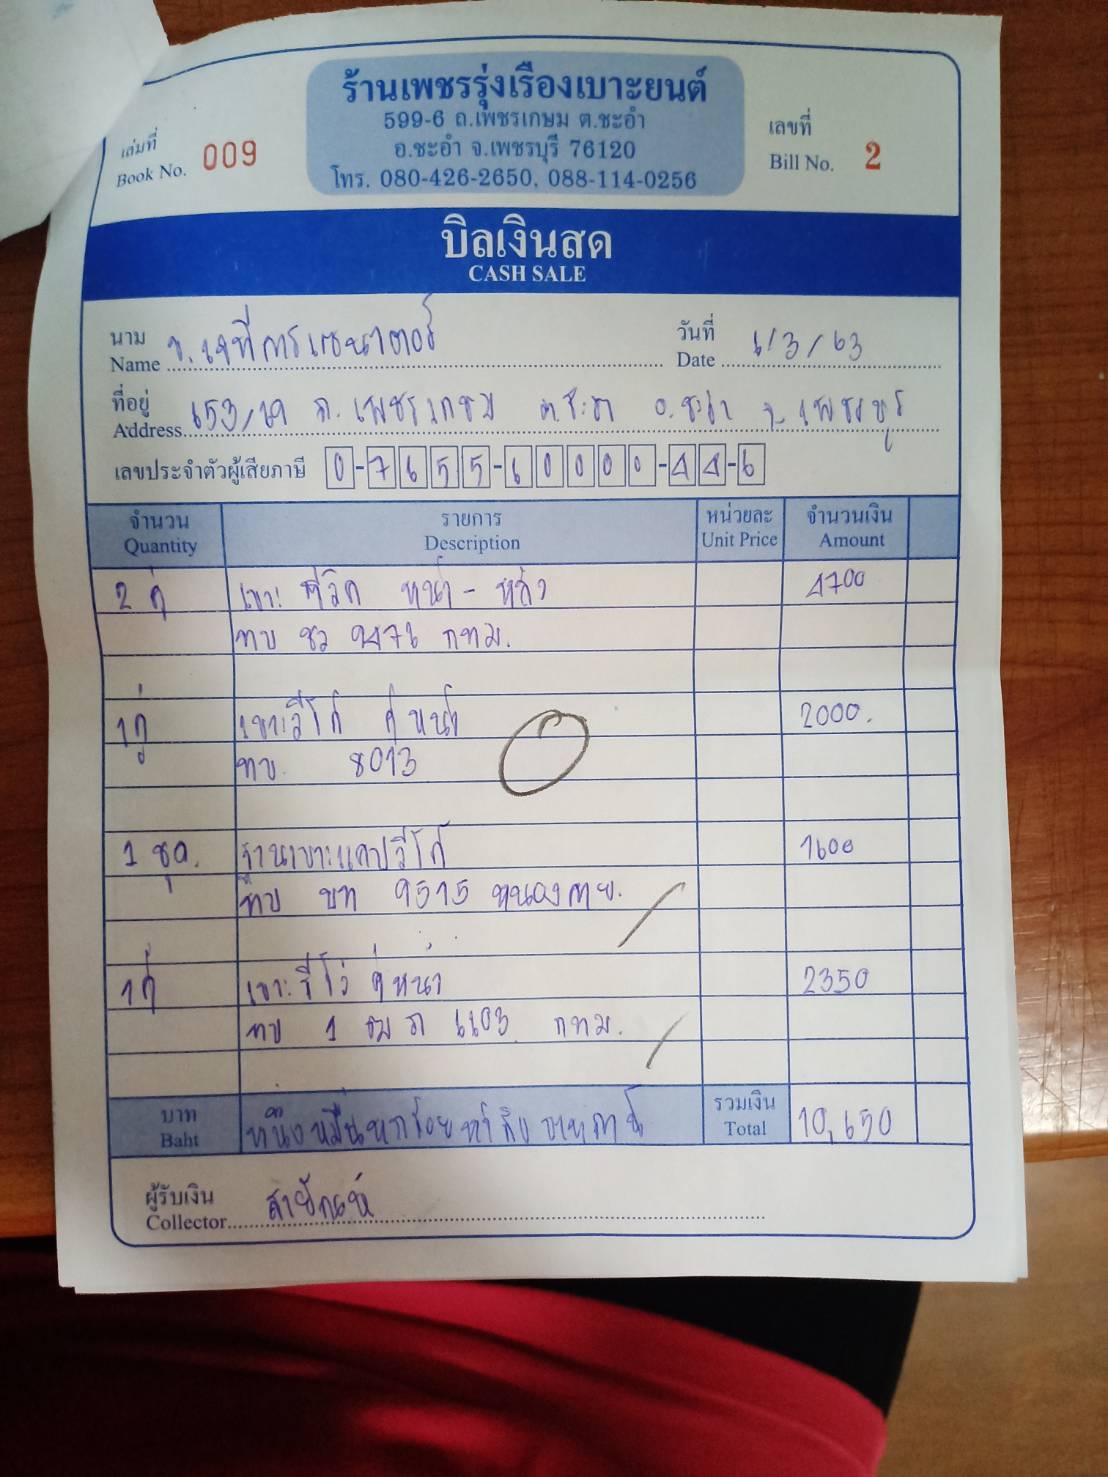 ร้านเพชรรุ่งเรืองเบาะยนต์
599-6 ถ.เพชรเกษม ต.ชะอำ
อ.ชะอำ จ.เพชรบุรี 76120
โทร. 080-426-2650, 088-114-0256
เล่มที่
Book No. 009
เลขที่
Bill No. 2
บิลเงินสด
CASH SALE
นาม
Name
วันที่
Date 6/3/63
ที่อยู่
Address ถ. เพชรเกษม อ. ชะอำ จ. เพชรบุรี
เลขประจำตัวผู้เสียภาษี 0-7655-60000-44-6
จำนวน รายการ หน่วยละ จำนวนเงิน
Quantity Description Unit Price Amount
2 คู่ เบาะ หน้า - หลัง 4700
ทบ ชว 9476 กทม.
1 คู่ เบาะวีโก้ คู่หน้า 2000.
ทบ. 8013
1 ชุด. ฐานเบาะแคปวีโก้ 1600
ทบ บท 9515
1 คู่ เบาะรีโว่ คู่หน้า 2350
ทบ 1 ฒภ 6603 กทม.
บาท หนึ่งหมื่นหกร้อยห้าสิบบาทถ้วน รวมเงิน 10,650
Baht Total
ผู้รับเงิน
Collector